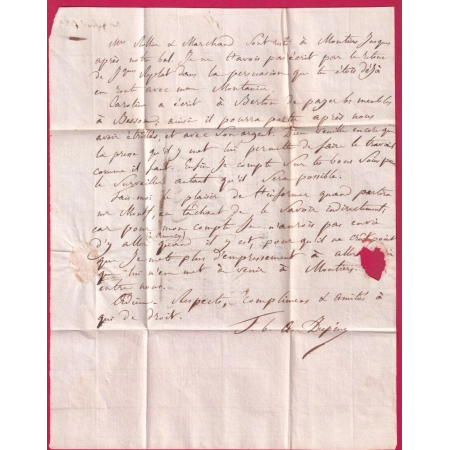 Mrs & Marchand sont resté à Moutiers jusques
après notre bal. Je ne t'avois pas écrit par le retour
de dans la persuasion que tu étois déjà
en route avec mon
Caroline a écrit à Berton de payer les meubles
à Basson, ainsi il pourra partir après nous
avoir étrillés, et avec son argent. Dieu veuille encore que
la presse qu'il y met lui permette de faire le travail
comme il faut. Enfin je compte sur tes bons soins pour
le surveiller autant qu'il sera possible.
Fais moi le plaisir de m'informer quand partira
mr en tachant de le savoir indirectement,
car pour mon compte je n'aurois pas envie
d'y aller quand il y est, pour qu'il ne crût point
que je mets plus d'empressement à aller
qu'il n'en met à venir à Moutiers.
entre nous.
Adieu. Respects, Complimens & amitiés à
qui de droit.